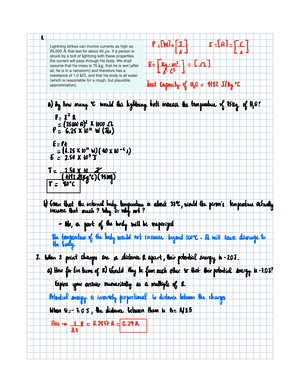 1.
Lightning strikes can involve currents as high as
25,000 A that last for about 40 μs. If a person is
struck by a bolt of lightning with these properties,
the current will pass through his body. We shall
assume that his mass is 75 kg, that he is wet (after
all, he is in a rainstorm) and therefore has a
resistance of 1.0 kΩ, and that his body is all water
(which is reasonable for a rough, but plausible,
approximation).
a) By how many °C would this lightning bolt increase the temperature of 75kg of H₂O?
P = I² R
= (25000 A)² X 1000 Ω
P = 6.25 X 10¹¹ W (J/s)
E = Pt
= (6.25 X 10¹¹ W)(40 X 10⁻⁶ s)
E = 2.50 X 10⁷ J
b) Given that the internal body temperature is about 37°C, would the person's temperature actually
increase that much? Why or why not?
- No, a part of the body will be vaporized
The temperature of the body would not increase beyond 100°C. It will cause damage to
the body.
2. When 2 point charges are a distance R apart, their potential energy is -2.0J.
a) How far (in terms of R) should they be from each other so that their potential energy is -7.0J?
Express your answer numerically as a multiple of R.
Potential energy is inversely proportional to distance between the charges